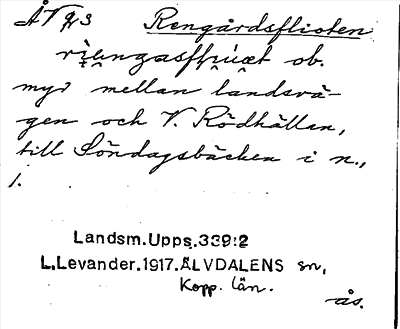 ÅV q3 Rengårdsflioten
ob.
myr mellan landsvä-
gen och V. Rödhällan,
till Söndagsbäcken i n.,
1.
Landsm.Upps.339:2
L.Levander.1917.ÄLVDALENS sn,
Kopp. län.
ås.